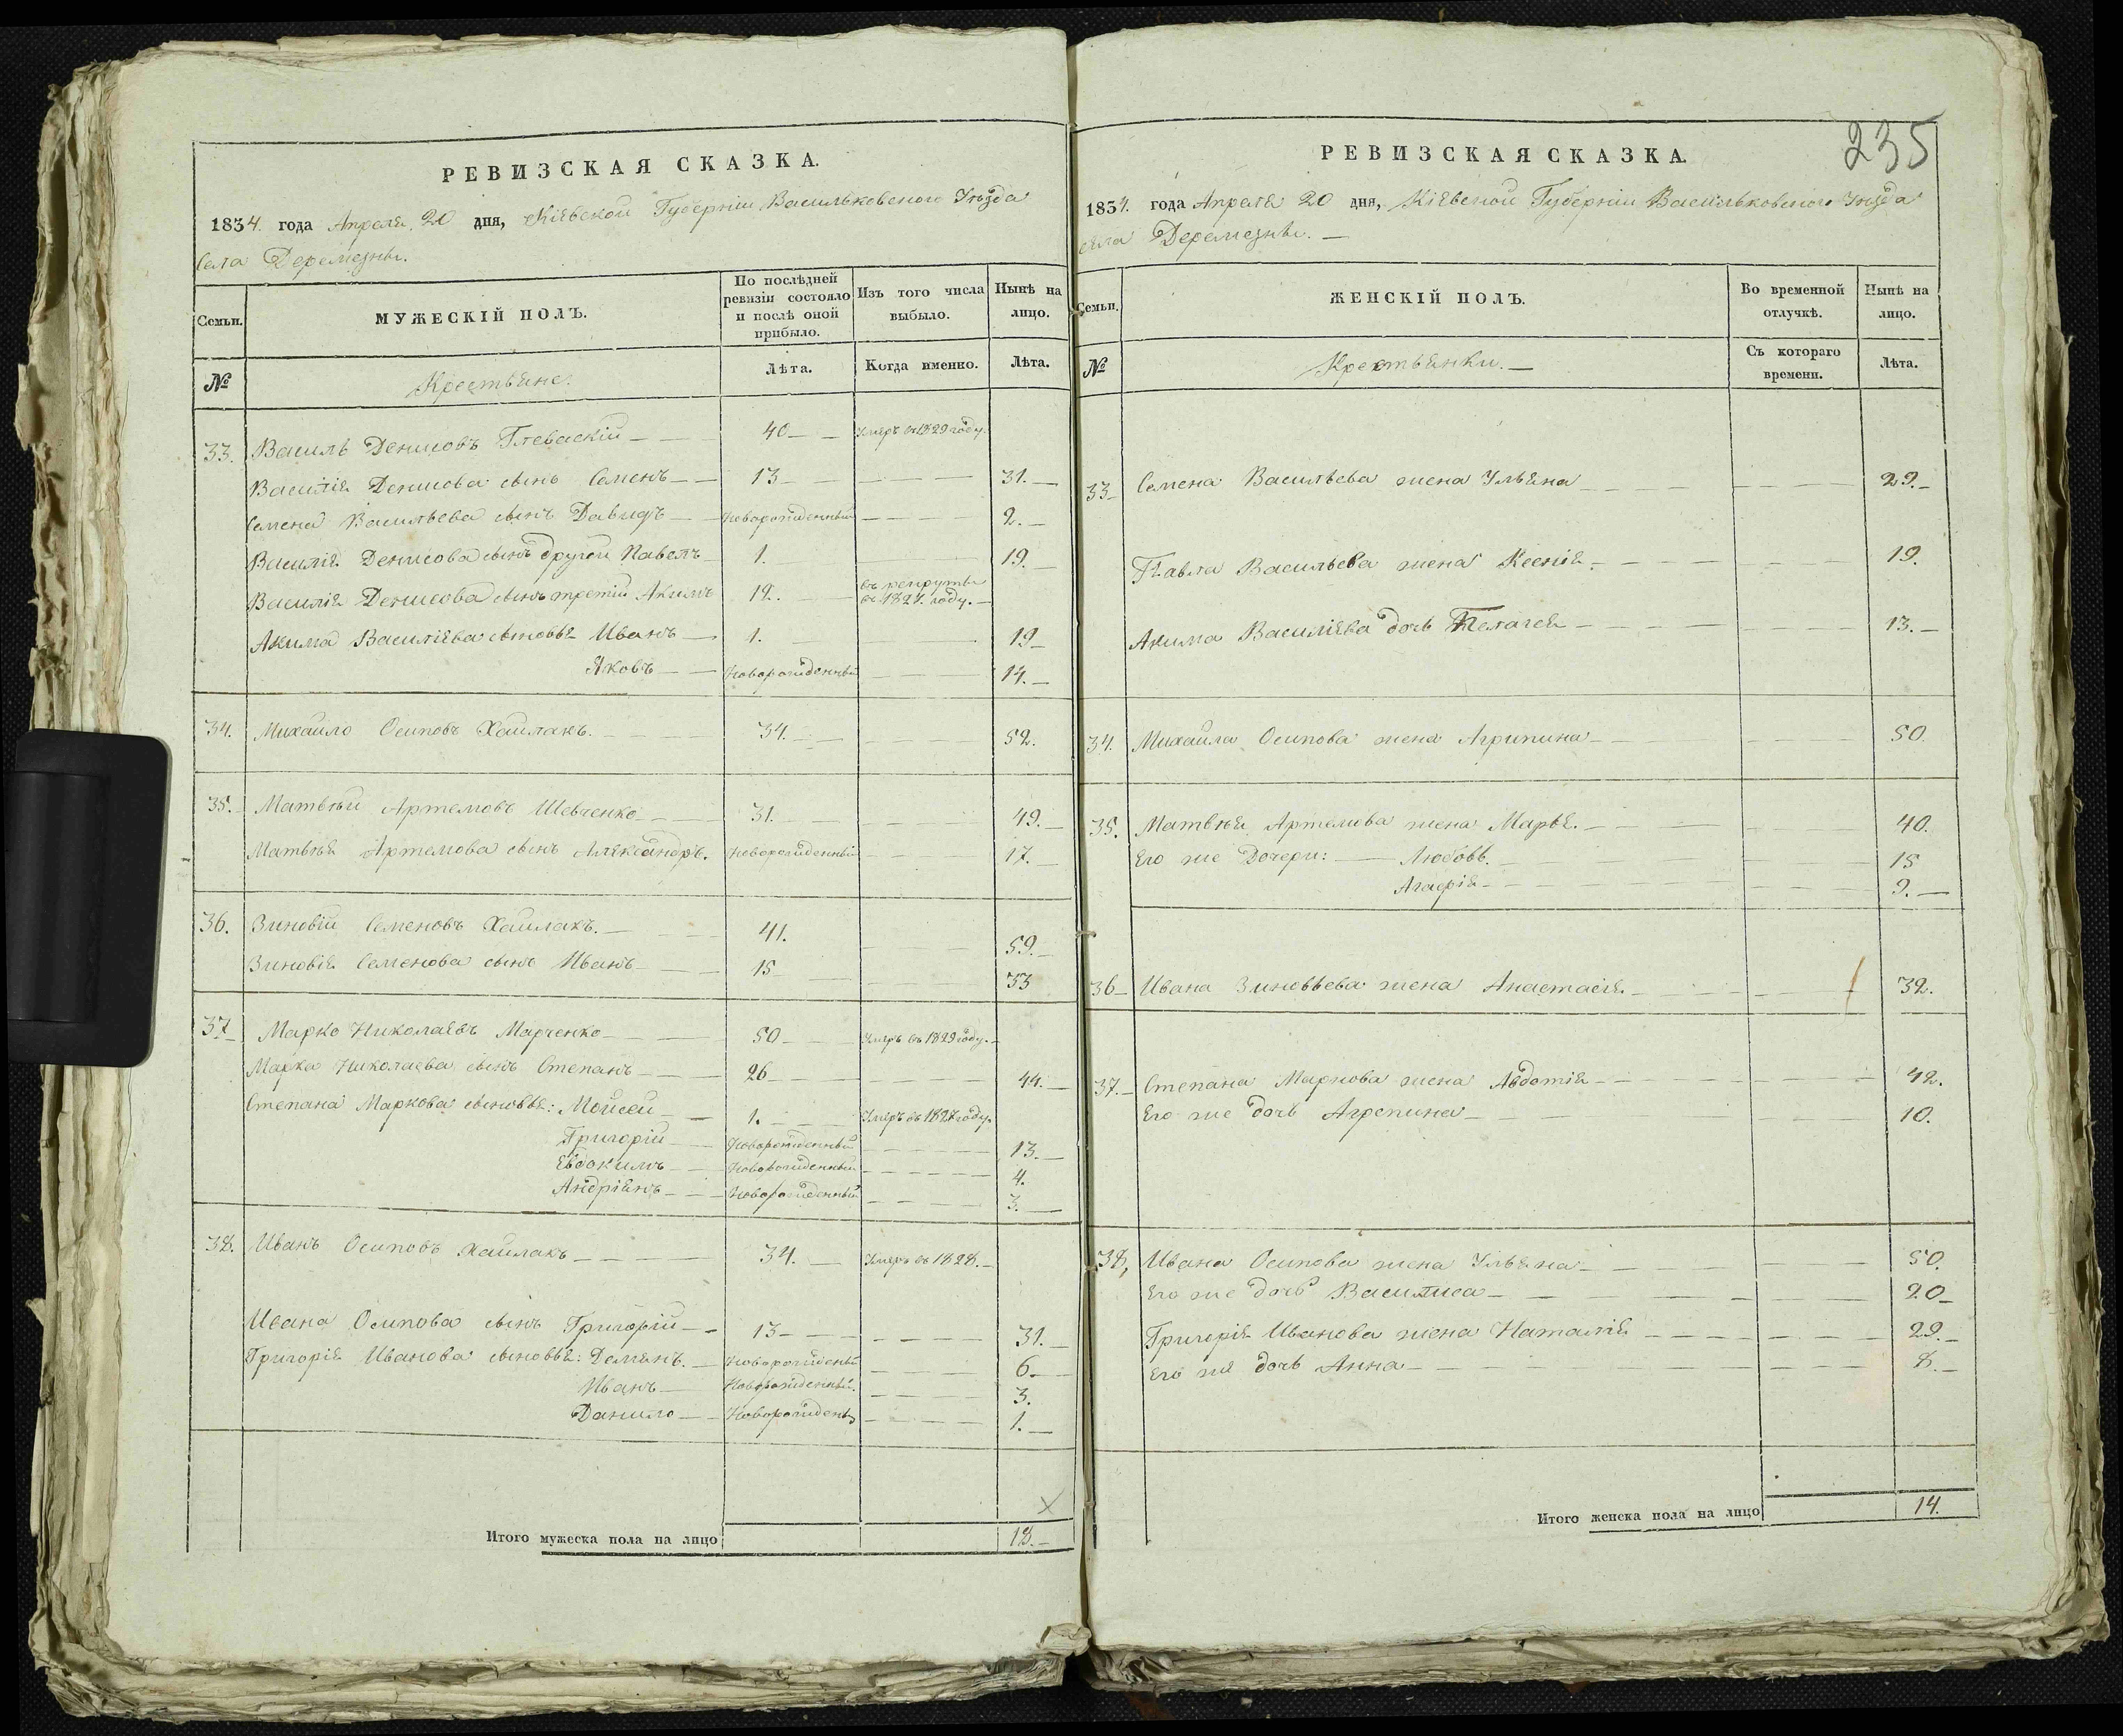 РЕВИЗСКАЯ СКАЗКА.
1834. года Апреля 20 дня, Кіевской Губерніи Васильковского Уезда
села Деремезны.
Семьи.
МУЖЕСКІЙ ПОЛЪ.
По послѣдней ревизіи состояло и послѣ оной прибыло.
Изъ того числа выбыло.
Нынѣ на лицо.
№
Крестьяне.
Лѣта.
Когда именно.
Лѣта.
33. Василь Денисовъ 40 Умеръ въ 1829 году.
Василія Денисова сынъ Семенъ 13 31.
Семена Васильева сынъ Давидъ Новорожденный 2.
Василія Денисова сынъ другой Павелъ 1. 19.
Василія Денисова сынъ третій Акимъ 12. въ рекруты въ 1827. году.
Акима Василіева сыновья Иванъ 1. 19
Яковъ Новорожденный 14.
34. Михайло Осиповъ Хайлакъ. 34. 52.
35. Матвѣй Артемовъ Шевченко 31. 49.
Матвѣя Артемова сынъ Александръ. Новорожденный 17.
36. Зиновій Семеновъ Хайлакъ. 41. 59.
Зиновія Семенова сынъ Иванъ 15 33
37 Марко Николаевъ Марченко 50 Умеръ въ 1829 году.
Марка Николаева сынъ Степанъ 26 44.
Степана Маркова сыновья: Мойсей 1. Умеръ въ 1827 году.
Григорій Новорожденный 13.
Евдокимъ Новорожденный 4.
Андріянъ Новорожденный 3.
38. Иванъ Осиповъ Хайлакъ 34. Умеръ въ 1828.
Ивана Осипова сынъ Григорій 13 31.
Григорія Иванова сыновья: Демянъ. Новорожденый 6.
Иванъ Новорожденный. 3.
Данило Новорожденъ 1.
Итого мужеска пола на лицо 18.
235
РЕВИЗСКАЯ СКАЗКА.
1834. года Апреля 20 дня, Кіевской Губерніи Васильковского Уезда
села Деремезны.
Семьи.
ЖЕНСКІЙ ПОЛЪ.
Во временной отлучкѣ.
Нынѣ на лицо.
№
Крестьянки.
Съ котораго времени.
Лѣта.
33 Семена Васильева жена Ульяна 29.
Павла Васильева жена Ксенія 19.
Акима Василіева дочь Пелагея 13.
34. Михайла Осипова жена Агрипина 50.
35. Матвѣя Артемова жена Марья. 40.
Его же Дочери: Любовь. 15
Агафія 9.
36 Ивана Зиновьева жена Анастасія. 32.
37. Степана Маркова жена Авдотія 42.
Его же дочь Агрепина 10.
38, Ивана Осипова жена Ульяна 50.
Его же дочь Василиса 20
Григорія Иванова жена Наталія 29.
Его же дочь Анна 8.
Итого женска пола на лицо 14.